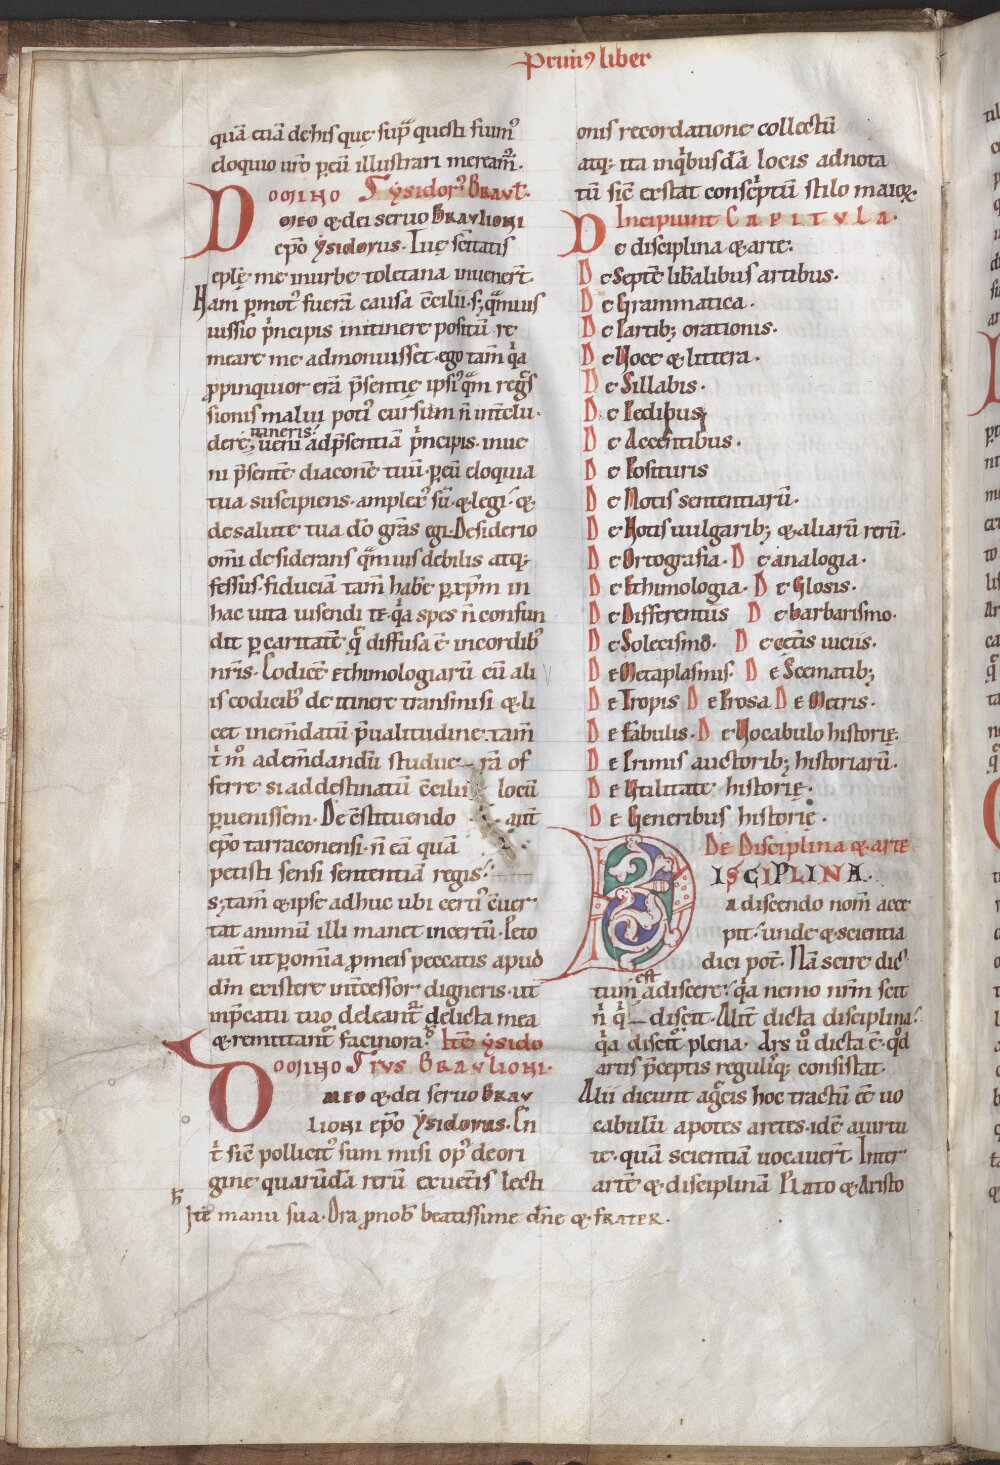 Primꝰ liber
quā etiā de his que sup̄ questi sumꝰ
eloquio ur̄o p eū illustrari meream̄.
Domino Ysidorꝰ Braul.
meo & dei seruo Braulioni
ep̄o ysidorus. Tue sc̄itatis
eplę me in urbe toletana inuenert̄.
Nam p̱motꝰ fuerā causa c̄cilii. s; q̄muis
iussio p̄ncipis in itinere positū re
meare me admonuisset. ego tam̄ q̇a
ꝓpinquior erā p̄sentię ipsiꝰ q̄m reḡs
sionis malui potiꝰ cursum n̄ int̄clu
dere;
muneris.
ueni ad p̄sentiā p̄ncipis. inue
ni p̄sente diacone tuū. p̱ eū eloquia
tua suscipiens. amplexꝰ sū. & legi. &
de salute tua d̄o gr̄as egi. Desiderio
om̄i desiderans q̄muis debilis atq;
fessus. fiduciā tam̄ habe p̱ xp̄m in
hac uita uisendi te. q̇a spes n̄ confun
dit p̱ caritatē q̄ diffusa ē in cordibꝰ
nr̄is. Codicē Ethimologiarū cū ali
is codicibꝰ de itinere transmisi & li
cet inem̄datū p̄ualitudine. tam̄
t̄ m̊ ad em̄dandū studue rā of
ferre si ad destinatū c̄cilii locū
p̱uenissem. De c̄stituendo aut̄
ep̄o tarraconensi. n̄ eā quā
petisti sensi sententiā regis.
s; tam̄ & ipse adhuc ubi certiꝰ c̄uer
tat animū illi manet incertū. Peto
aut̄ ut p̱ om̄ia ꝓ meis peccatis apud
dm̄ existere int̄cessor digneris. ut
inp̄catu tuo deleant̄ delicta mea
& remittant̄ facinora. Itē ysido
Domino rus Braulioni.
meo & dei seruo Brau
lioni ep̄o ysidorus. En
t̄ sic̄ pollicitꝰ sum misi opꝰ de ori
gine quarūdā rerū ex uet̄is lecti
h̄
Itē manu sua. Ora ꝓ nob̄ beatissime dn̄e & frater.
onis recordatione collectū
atq; ita in q̇busdā locis adnota
tū sic̄ exstat consc̄ptū stilo maioꝝ.
Incipiunt Capitula.
De disciplina & arte.
De Septē lib̄alibus artibus.
De Grammatica.
De Partib; orationis.
De Uoce & littera.
De Sillabis.
De Pedibus;
De Accentibus.
De Posituris
De Notis sententiarū.
De Notis uulgarib; & aliarū rerū.
De Ortografia. De analogia.
De Ethimologia. De Glosis.
De Differentiis De barbarismo.
De Solecismo. De cet̄is uiciis.
De Metaplasmis. De Scematib;
De Tropis De Prosa De Metris.
De Fabulis. De Uocabulo historię.
De Primis auctorib; historiarū.
De Utilitate historię.
De Generibus historię.
De Disciplina & arte
Disciplina.
a discendo nom̄ acce
pit. unde & scientia
dici pot̄. Nā scire dic̄
est
tum a discere. q̇a nemo nr̄m scit
n̄ q̇ discit. Alit̄ dicta disciplina.
q̇a discit̄ plena. Ars ū dicta ē. qd̄
artis p̄ceptis regulisq; consistat.
Alii dicunt a ḡcis hoc tractū c̄e uo
cabulū apotes aretes. idē a uirtu
te. quā scientiā uocauert̄. Inter
artē & disciplinā Plato & Aristo